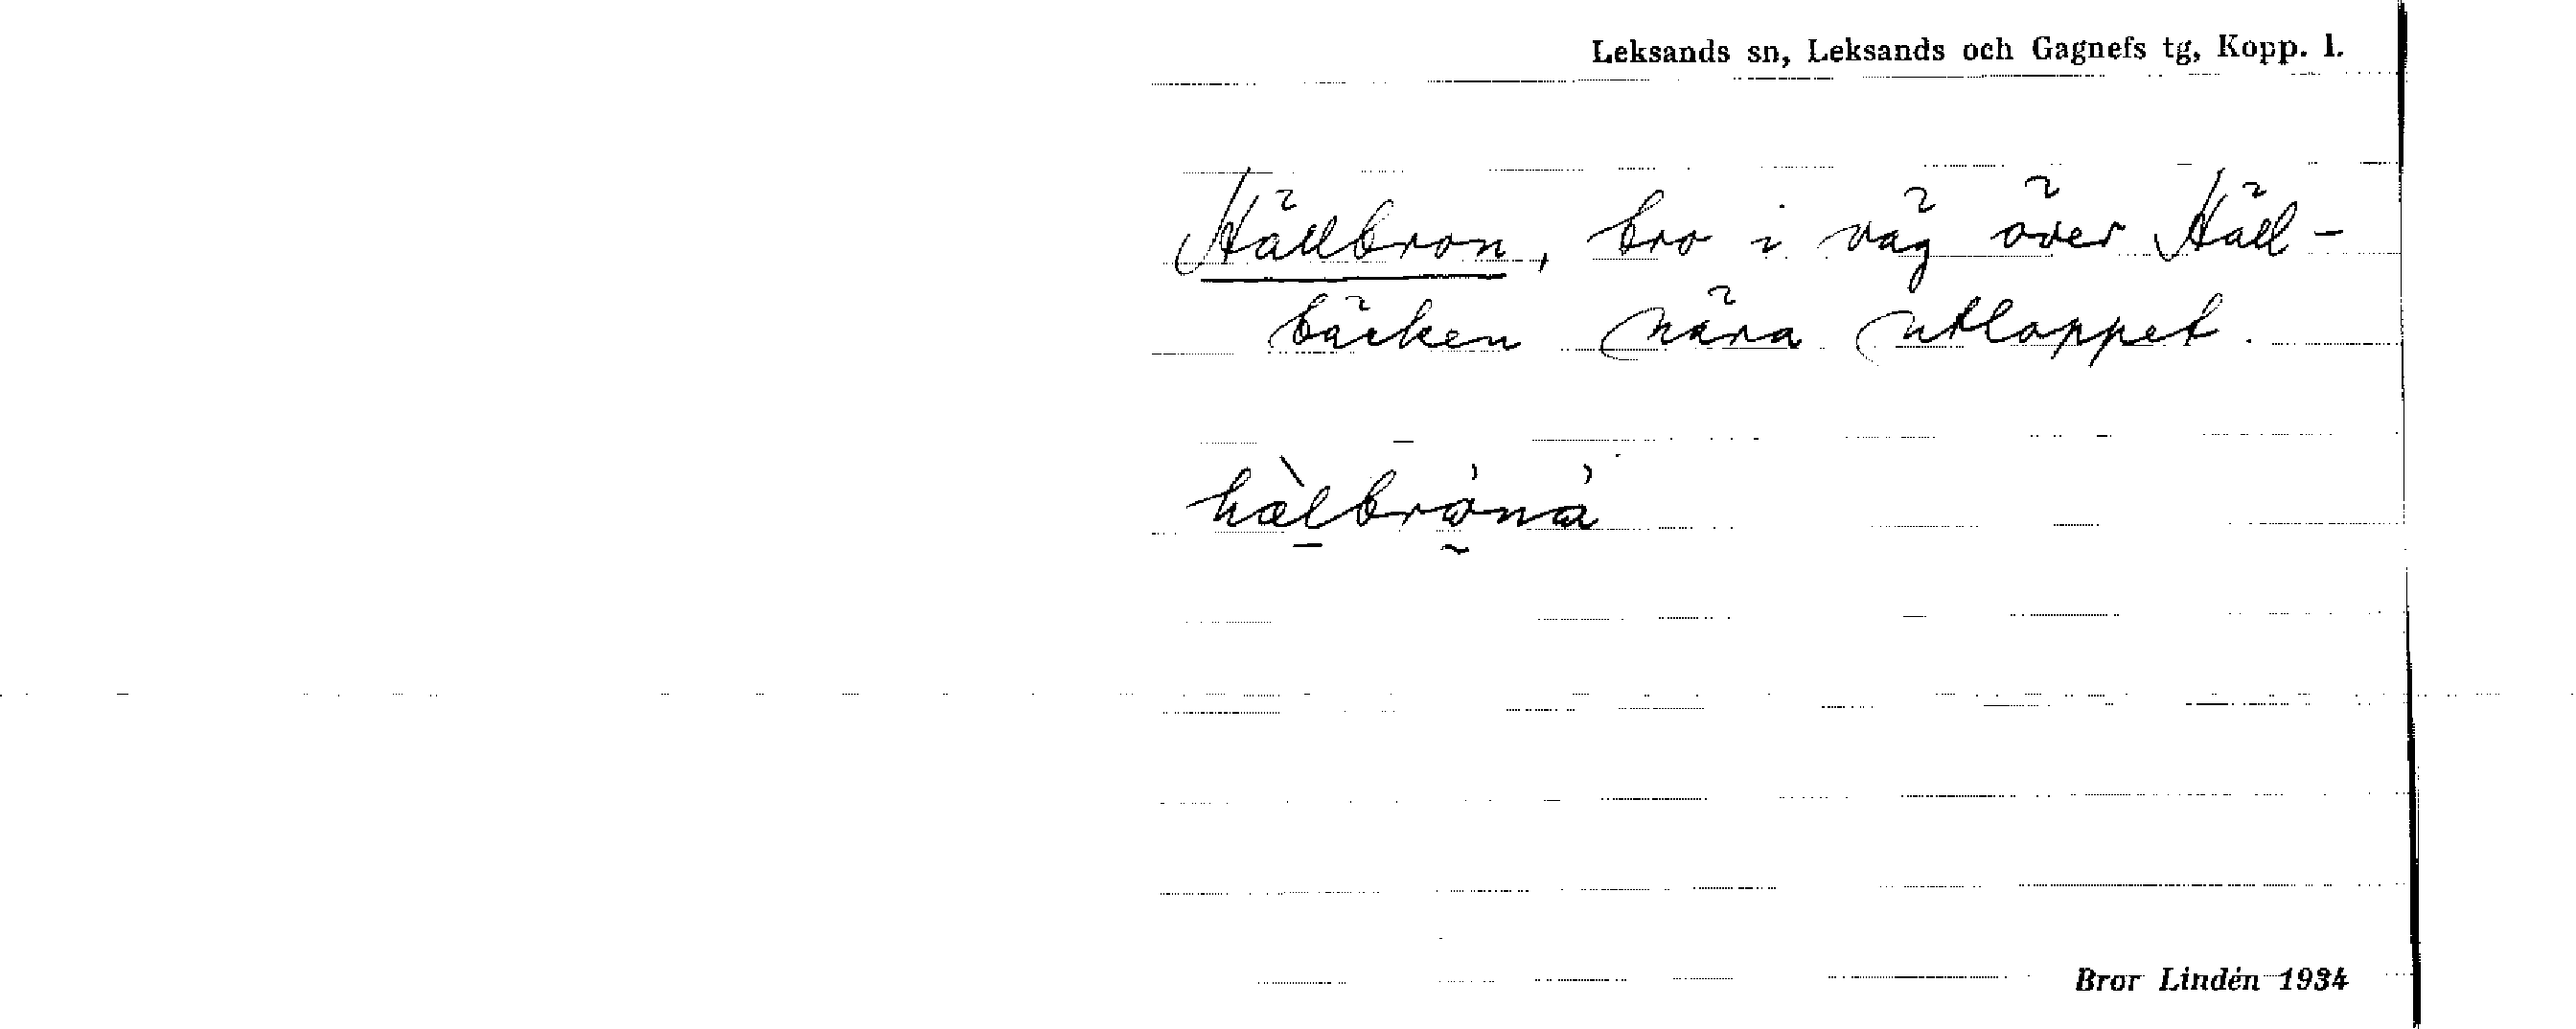 Leksands sn, Leksands och Gagnefs tg, Kopp. l.
Hällbron, bro i väg över Häll-
bäcken nära utloppet.
hæ̀lbrònà
Bror Lindén 1934